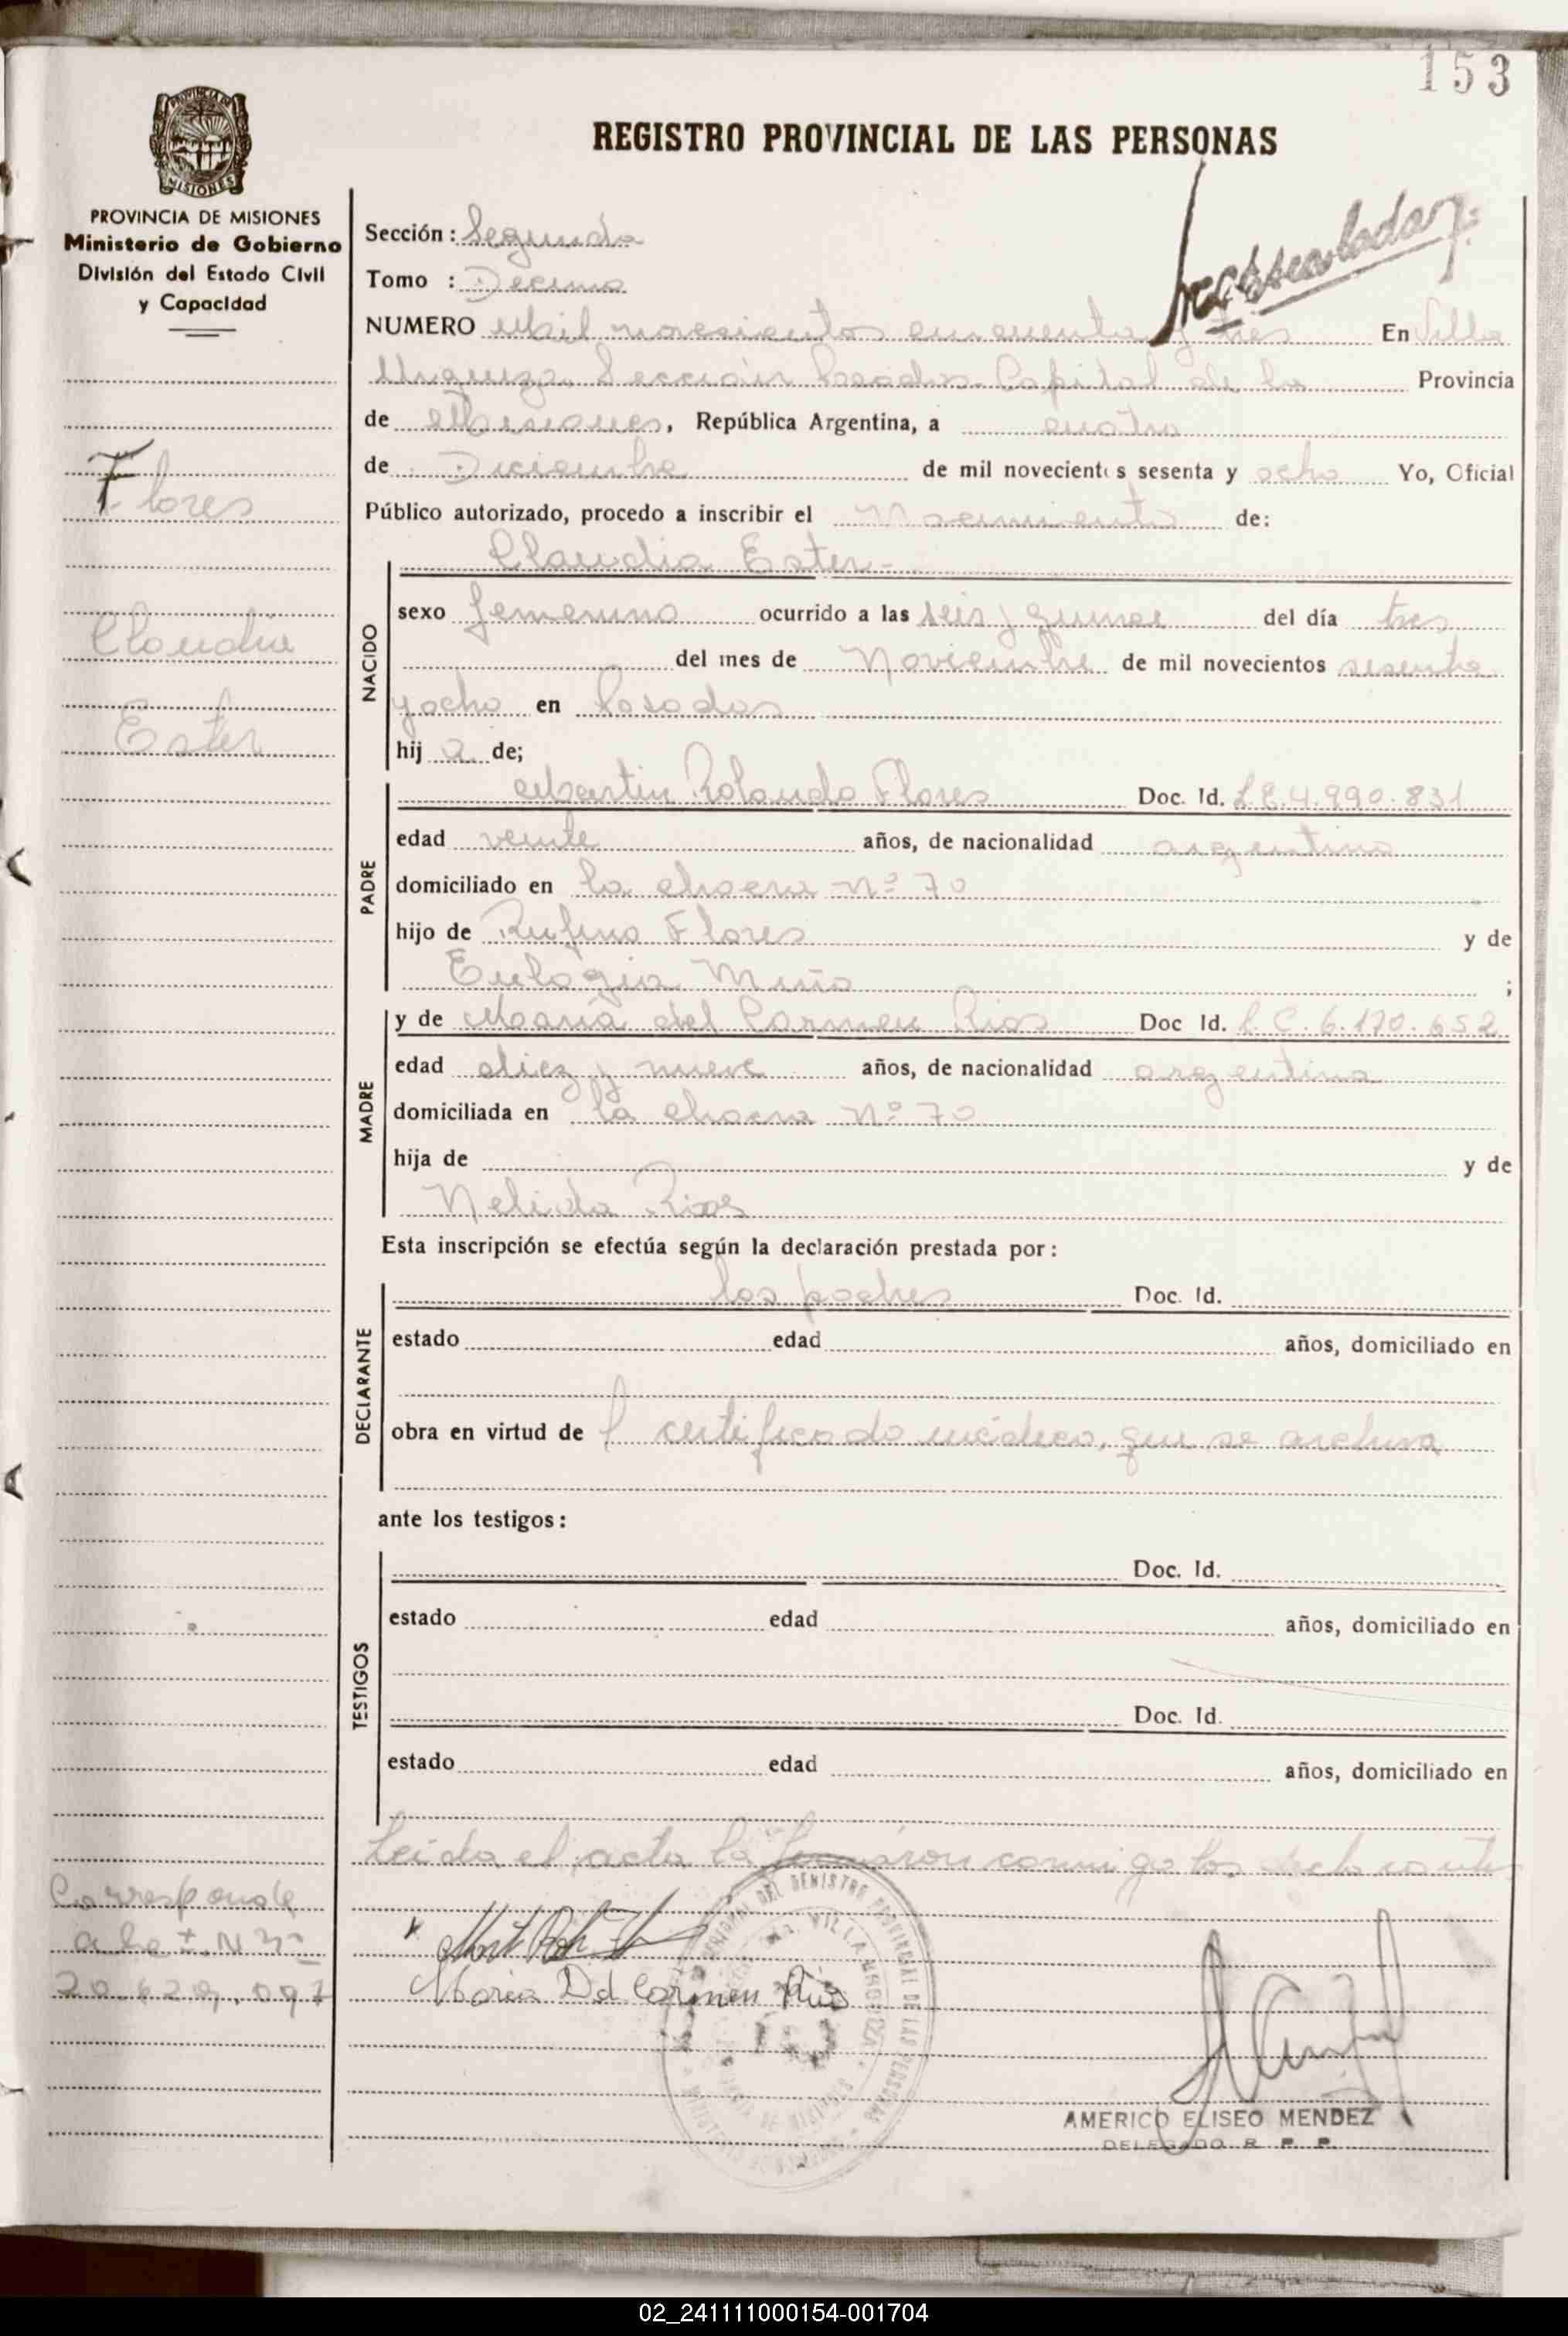 153
REGISTRO PROVINCIAL DE LAS PERSONAS
MISIONES
PROVINCIA DE MISIONES
Ministerio de Gobierno
División del Estado Civil
y Capacidad
Flores
Claudia
Ester
Sección: Segunda
Tomo : Decimo
NUMERO Mil novecientos cincuenta y tres En Villa
Urquiza, Sección Posadas Capital de la Provincia
de Misiones, República Argentina, a cuatro
de Diciembre de mil novecientos sesenta y ocho Yo, Oficial
Público autorizado, procedo a inscribir el Nacimiento de:
NACIDO
Claudia Ester-
sexo femenino ocurrido a las seis y quince del día tres
del mes de Noviembre de mil novecientos sesenta
y ocho en Posadas
hij a de;
PADRE
Martin Rolando Flores Doc. Id. L.E.4.990.831
edad veinte años, de nacionalidad argentina
domiciliado en la chacra Nº 70
hijo de Rufino Flores y de
Eulogia Miño ;
MADRE
y de Maria del Carmen Rios Doc Id. L.C. 6.170.652
edad diez y nueve años, de nacionalidad argentina
domiciliada en la chacra Nº 70
hija de y de
Nelida Rios
Esta inscripción se efectúa según la declaración prestada por:
DECLARANTE
los padres Doc. Id.
estado edad años, domiciliado en
obra en virtud de l certificado médico, que se archiva
ante los testigos:
TESTIGOS
Doc. Id.
estado edad años, domiciliado en
Doc. Id.
estado edad años, domiciliado en
Leida el acta la firmaron conmigo los declarantes
Corresponde
Maria Del Carmen Rios
AMERICO ELISEO MENDEZ
DELEGADO R. P. P.
02_241111000154-001704